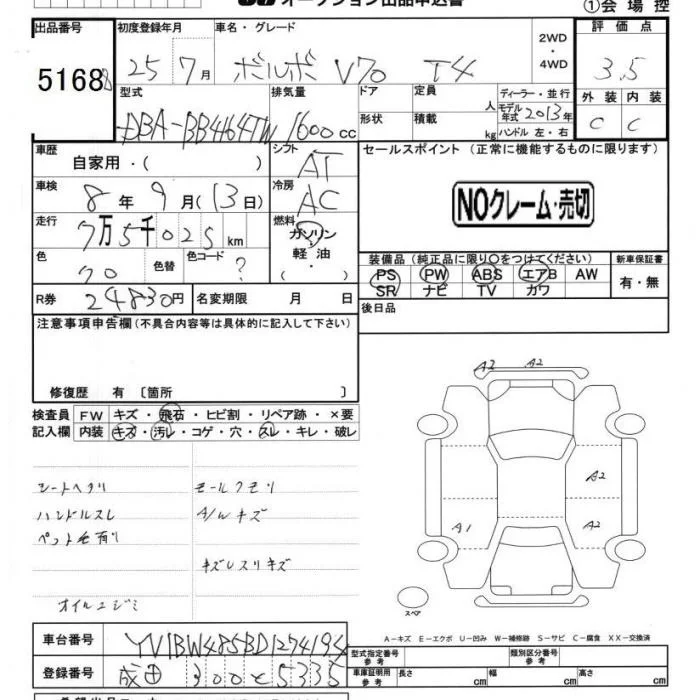 オークション出品申込書
①会場控
出品番号
5168
初度登録年月
25 7月
車名・グレード
ボルボ V70 T4
2WD
・
4WD
評価点
3.5
型式
DBA-BB4164TW
排気量
1600cc
ドア
形状
定員
人
積載
kg
ディーラー・並行
モデル年式 2013年
ハンドル 左・右
外装 内装
C C
車歴
自家用・( )
シフト
AT
車検
8年9月(13日)
冷房
AC
走行
7万5千025km
燃料
ガソリン
・
軽油
・
( )
色
クロ
色替
色コード
?
R券 24830円
名変期限 月 日
セールスポイント (正常に機能するものに限ります)
NOクレーム・売切
装備品 (純正品に限り○をつけてください)
PS PW ABS エアB AW
SR ナビ TV カワ
新車保証書
有・無
後日品
注意事項申告欄(不具合内容等は具体的に記入して下さい)
修復歴 有 〔箇所 〕
検査員記入欄
FW キズ・飛石・ヒビ割・リペア跡・×要
内装 キズ・汚レ・コゲ・穴・スレ・キレ・破レ
シートヘタリ
ハンドルスレ
ペット毛有り
オイルニジミ
モールクモリ
A/Wキズ
キズレスリキズ
A2 A2
A2
A1 A2
スペア
A-キズ E-エクボ U-凹み W-補修跡 S-サビ C-腐食 XX-交換済
車台番号
YV1BW485BD1274194
登録番号
成田 300 と 5335
型式指定番号
参考
類別区分番号
参考
車庫証明用
参考
長さ cm
幅 cm
高さ cm